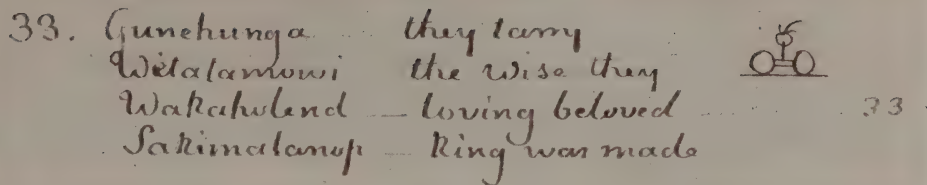 33. Gunehunga they tarry
Wetatamowi the wise they
Wakaholend — loving beloved 33
Sakimalanop — King was made